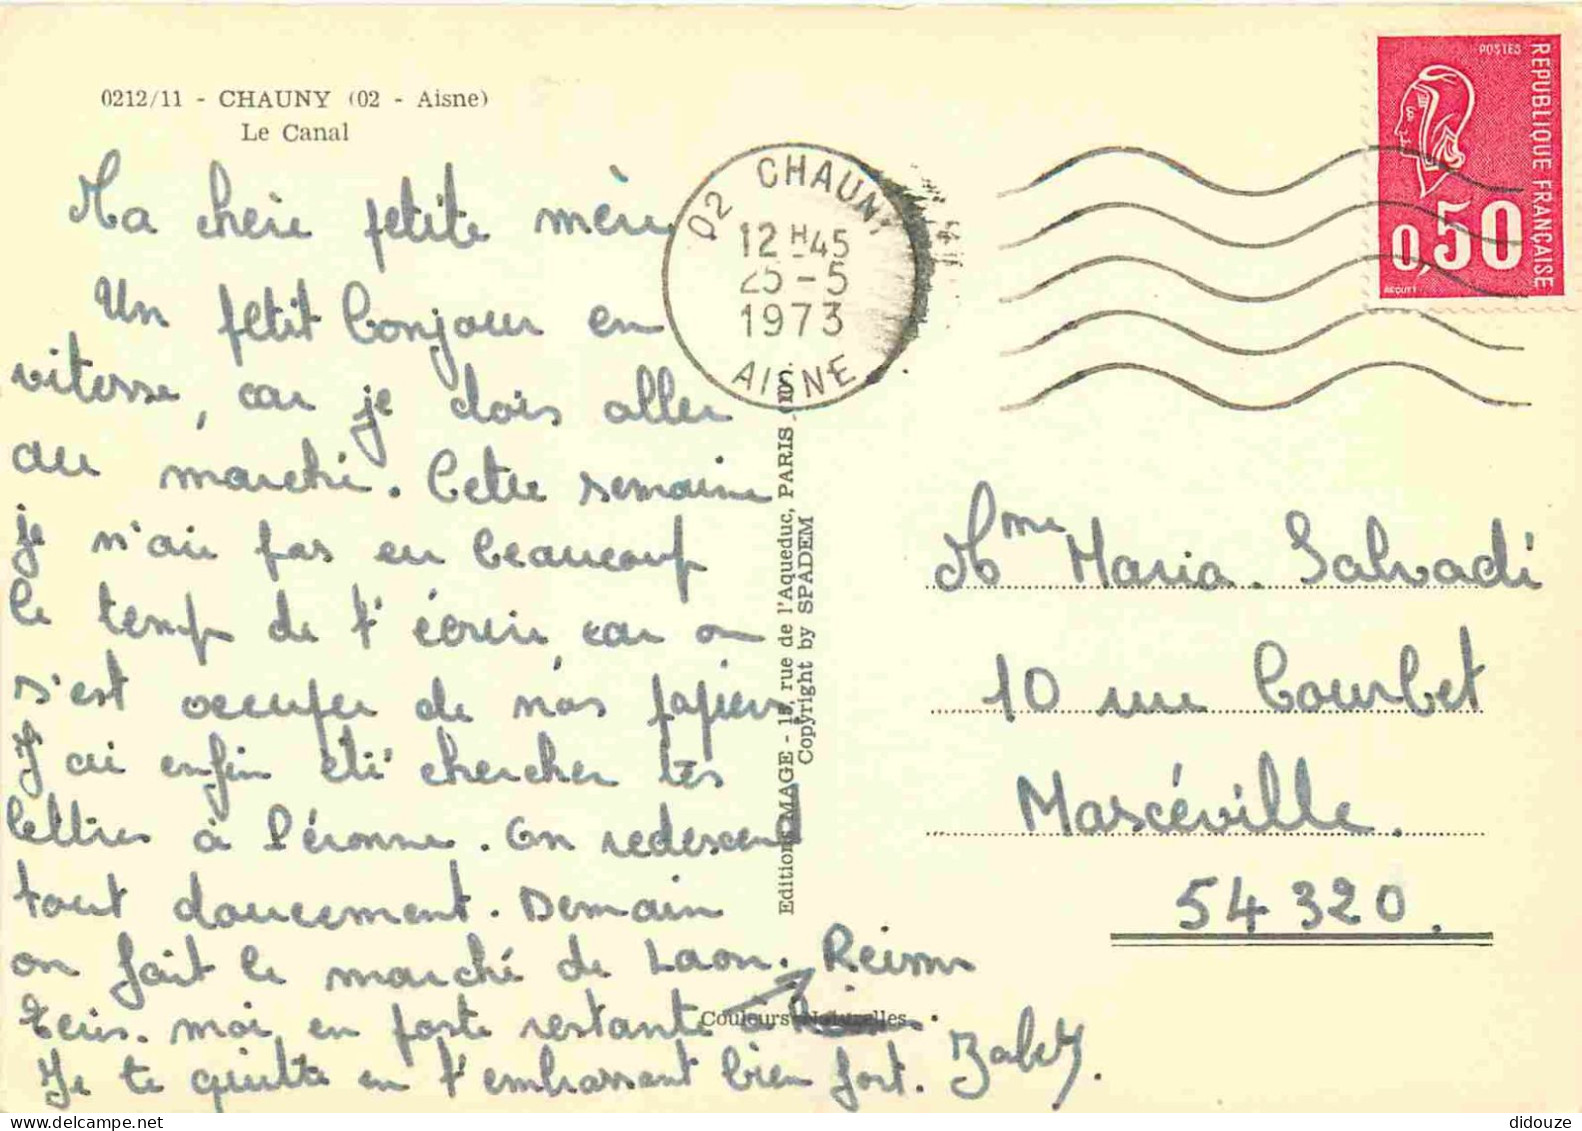 0212/11 - CHAUNY (02 - Aisne)
Le Canal
Ma cheie petite mère
Un petit bonjour en
vitesse, car je dois aller
au marché. Cette semaine
je n'ai pas eu beaucoup
le temps de t'écrire, car on
s'est occuper de nos papiers
J'ai enfin été chercher tes
lettres à Péronne. On redescend
tout doucement. Demain
on fait le marché de Laon. Reims
Ecris-moi en poste restante à
Je te quitte en t'embrassant bien fort.
02 CHAUNY
12 H 45
25 - 5
1973
AISNE
POSTES
REPUBLIQUE FRANÇAISE
0,50
BEQUET
Editions IMAGE - 15, rue de l'Aqueduc, PARIS
Copyright by SPADEM
Couleurs Naturelles
Mme Maria Salvadi
10 rue Courbet
Mascéville.
54320.
didouze